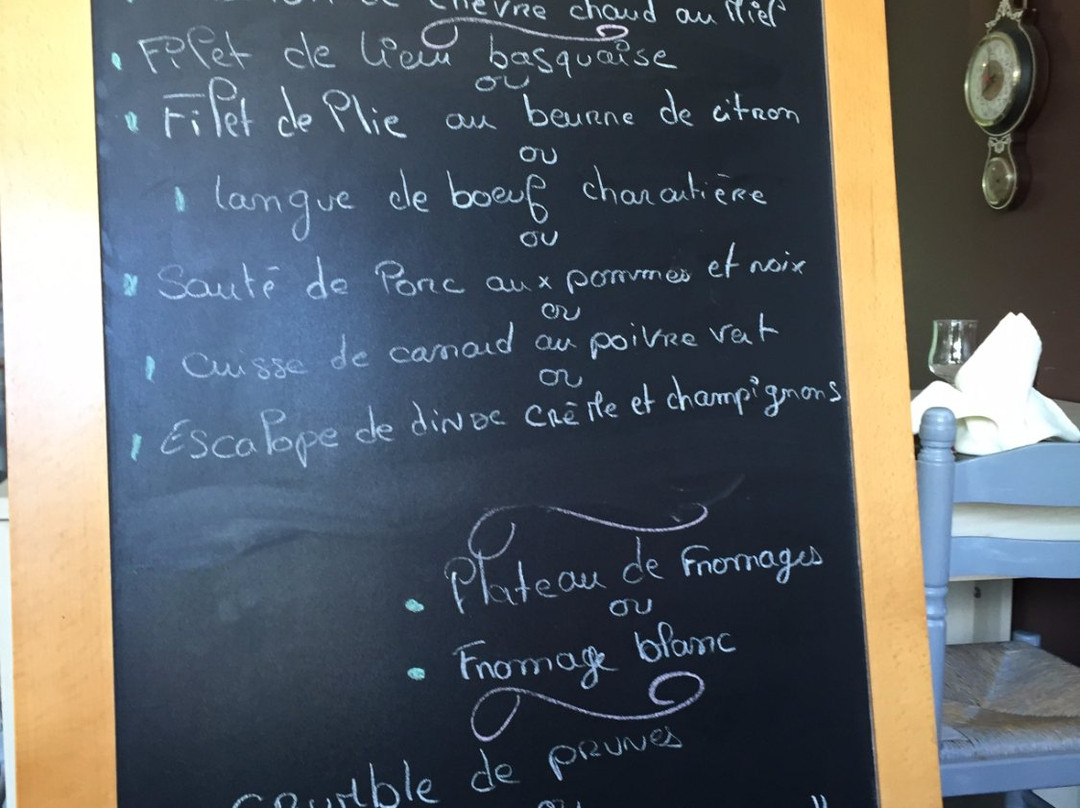 de chèvre chaud au Miel
Filet de lieu basquaise
ou
Filet de Plie au beurre de citron
ou
langue de boeuf charcutière
ou
Sauté de Porc aux pommes et noix
ou
Cuisse de canard au poivre vert
ou
Escalope de dinde crème et champignons
Plateau de Fromages
ou
Fromage blanc
Crumble de prunes
ou